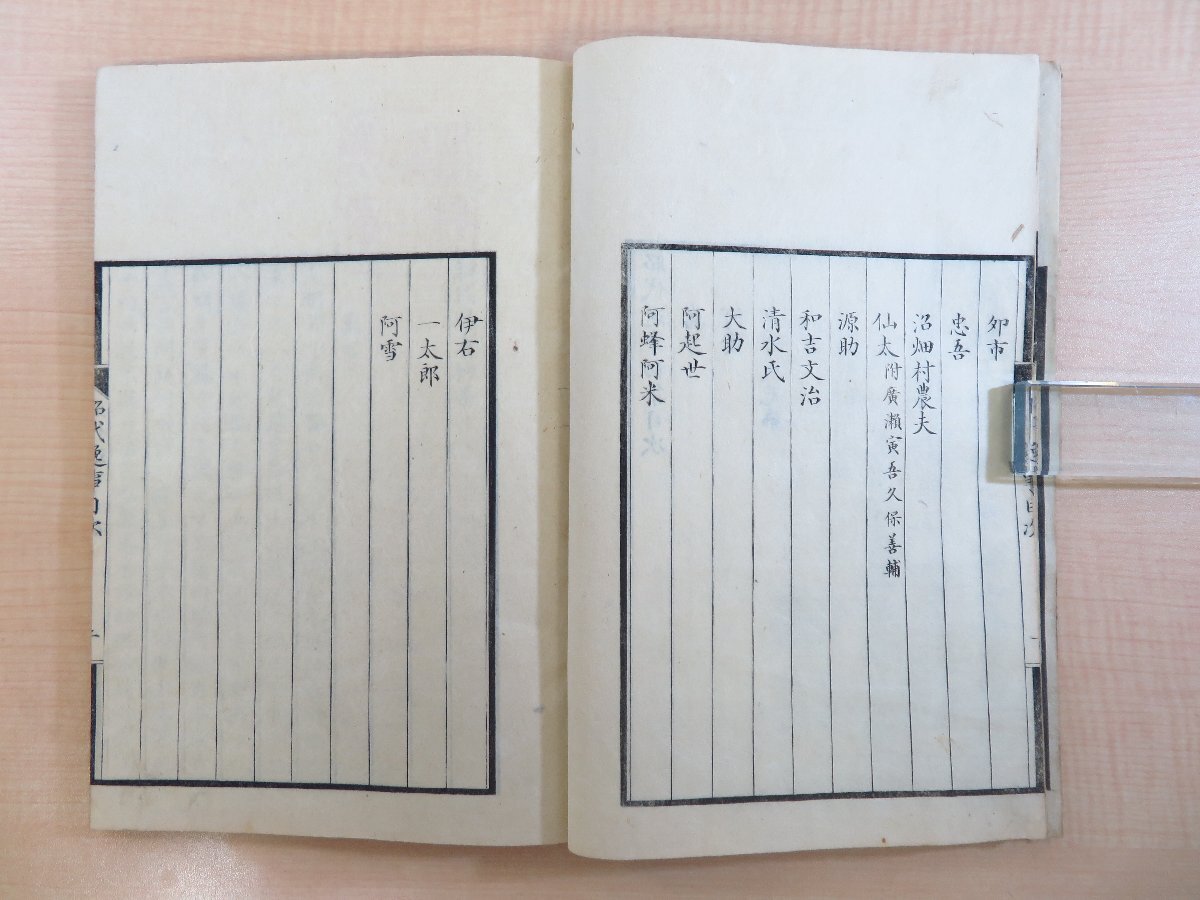 夘市
忠吾
沼畑村農夫
仙太附廣瀬寅吾久保善輔
源助
和吉文治
清水氏
大助
阿起世
阿蜂阿米
伊右
一太郎
阿雪
昭代逸事目次